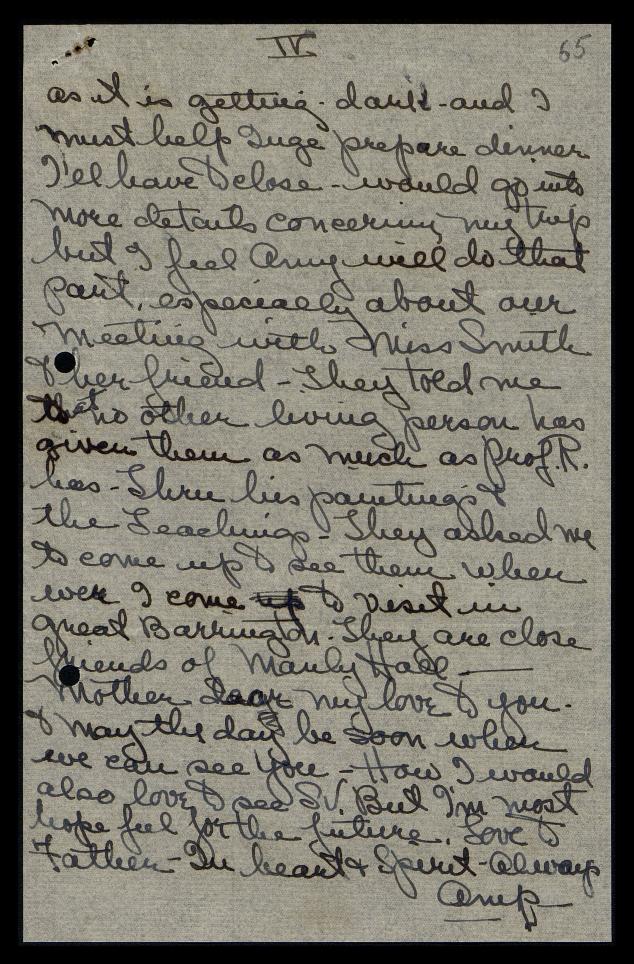 IV.
65
as it is getting-dark-and I
must help Inge prepare dinner
I'll have to close - would go into
more details concering my trip
but I feel Amy will do that
part, especially about our
Meeting with Miss Smith
& her friend - They told me
that no other living person has
given them as much as Prof. R.
has - Thru his paintings &
the Teachings - They asked me
to come up to see them when
ever I come up to visit in
great Barrington. They are close
friends of Manly Hall —
Mother Dear my love to you.
& may the day be soon when
we can see you - How I would
also love to see S.V. But I'm most
hope ful for the future. Love to
Father - In heart & Spirit - Always